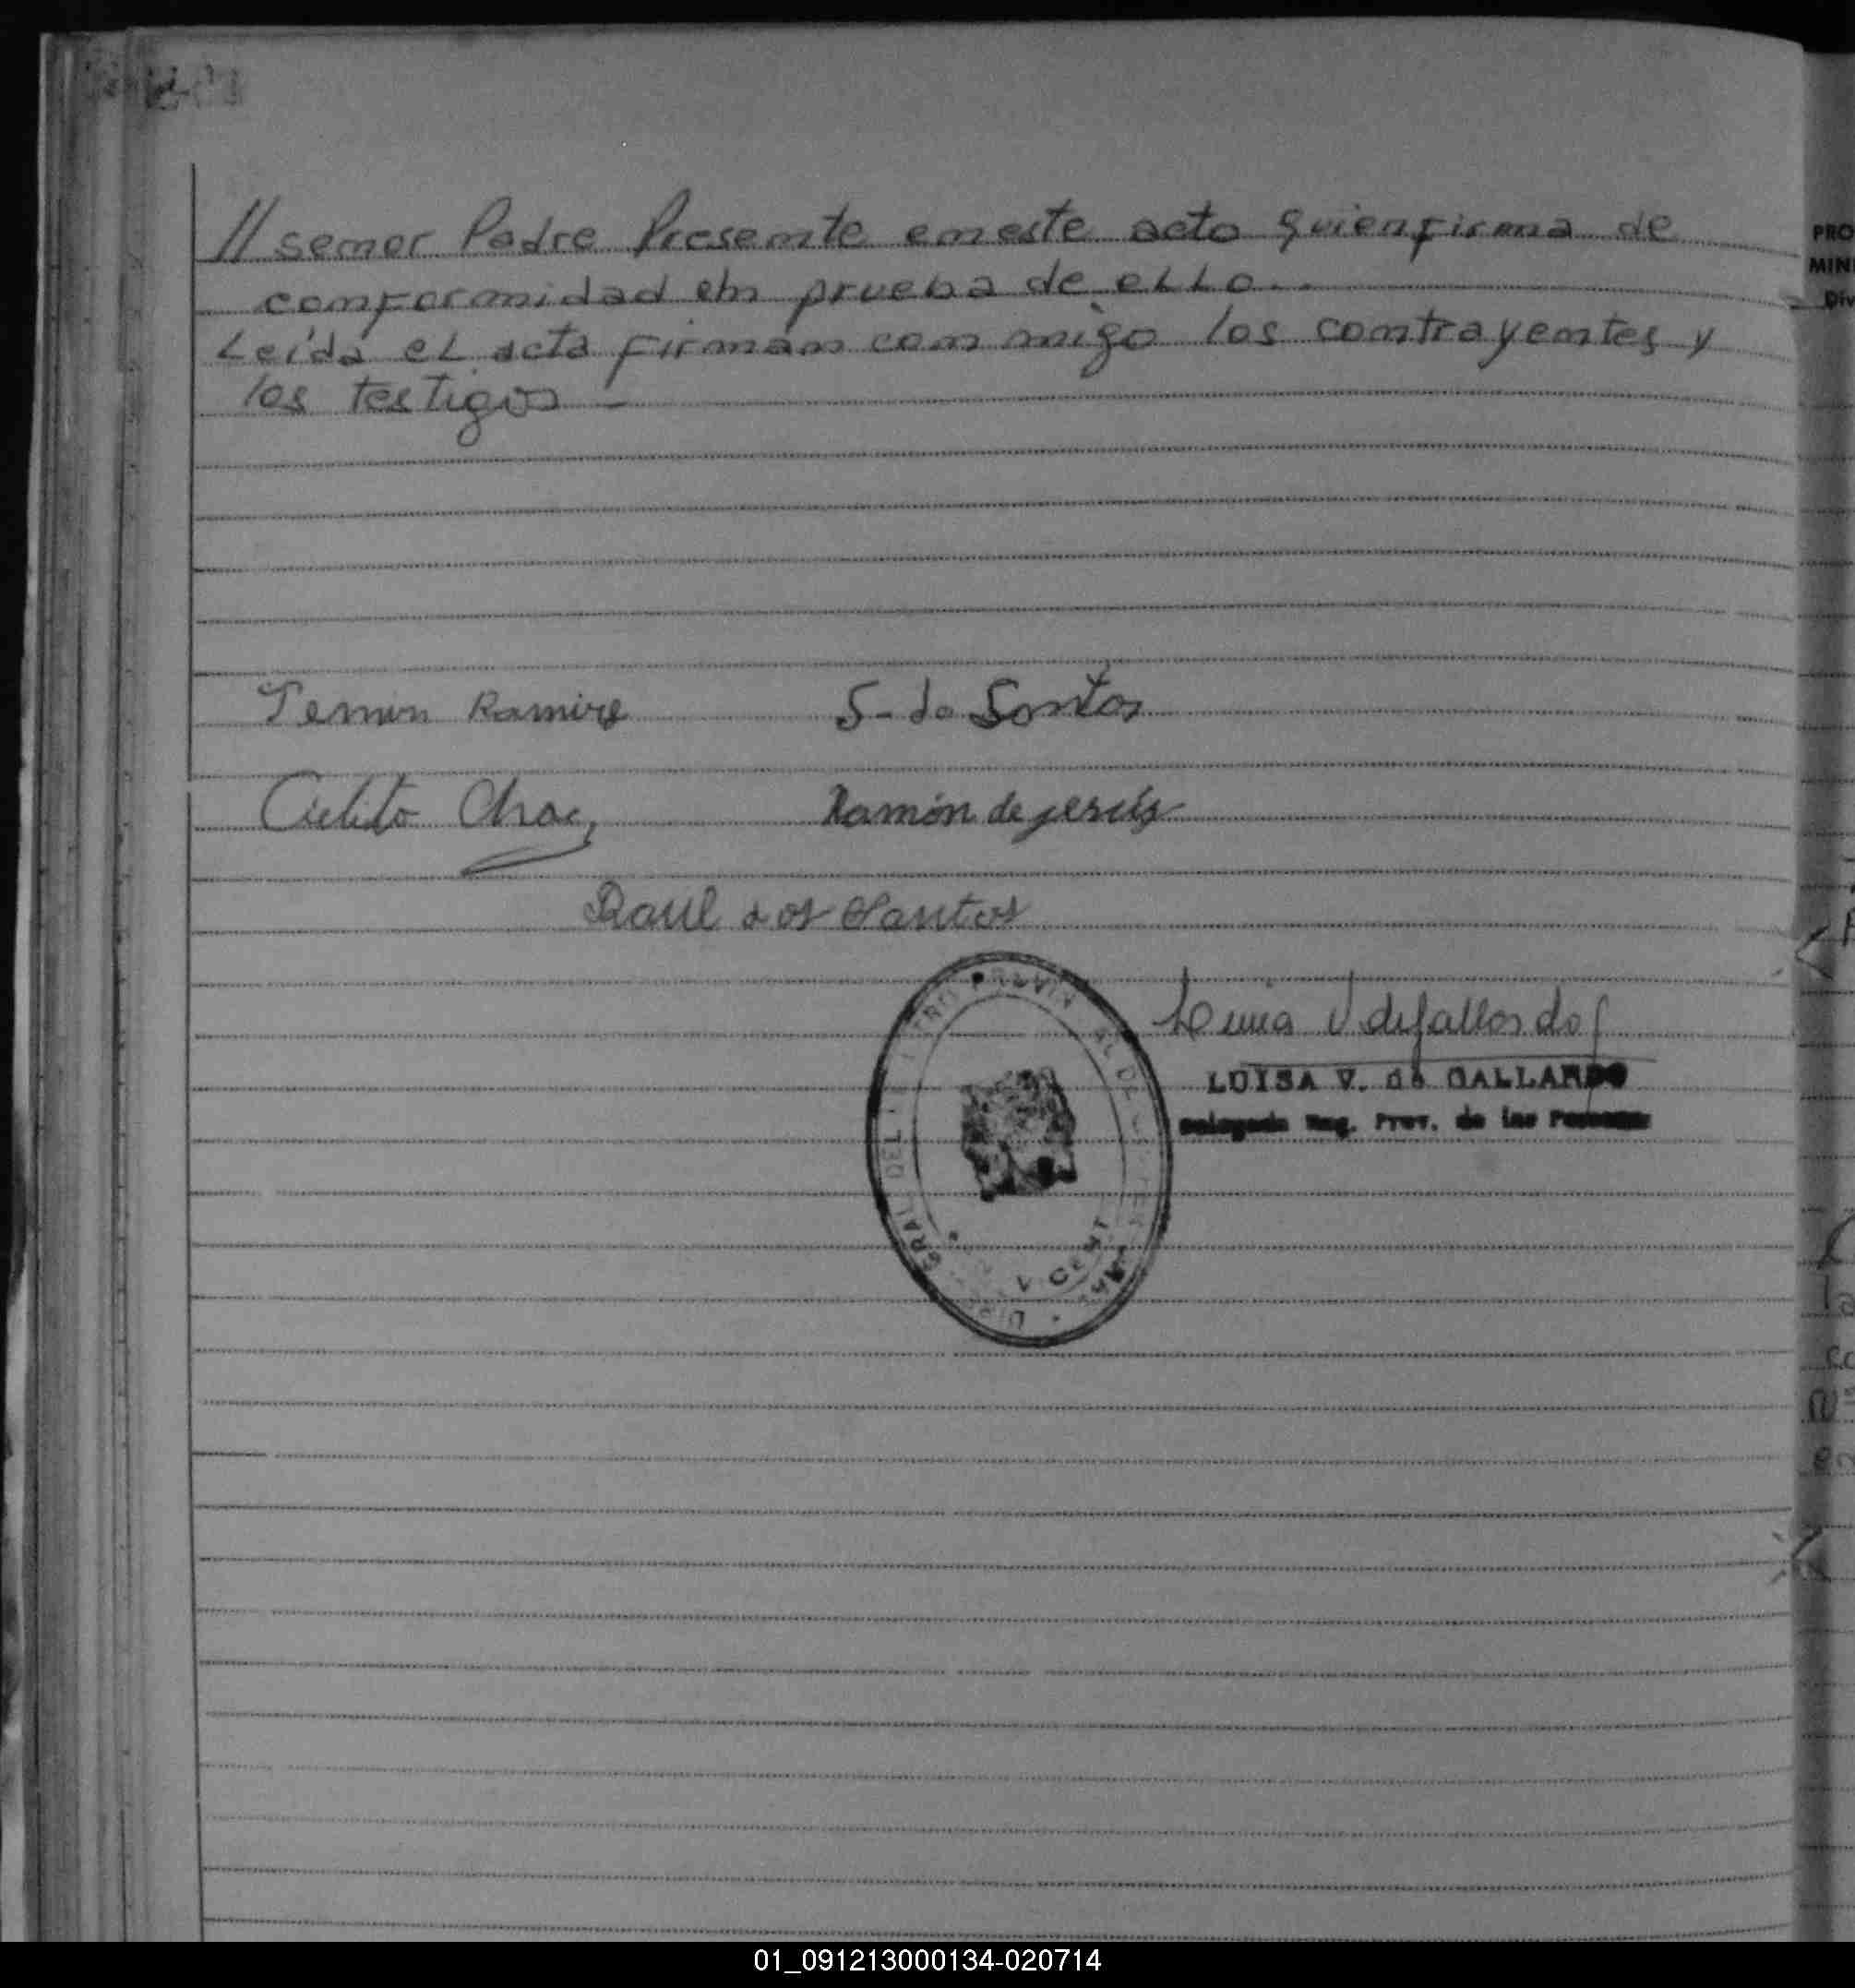 // señor Padre Presente en este acto quien firma de
conformidad en prueba de ello..
Leída el acta firman con migo los contrayentes y
los testigos —
Ramire
S- do Santos
Chac
Ramón de jesús
Raul dos Santos
Luisa V de Gallardo
LUISA V. de GALLARDO
Delegada Reg. Prov. de las Personas
PRO
MIN
Div
01_091213000134-020714